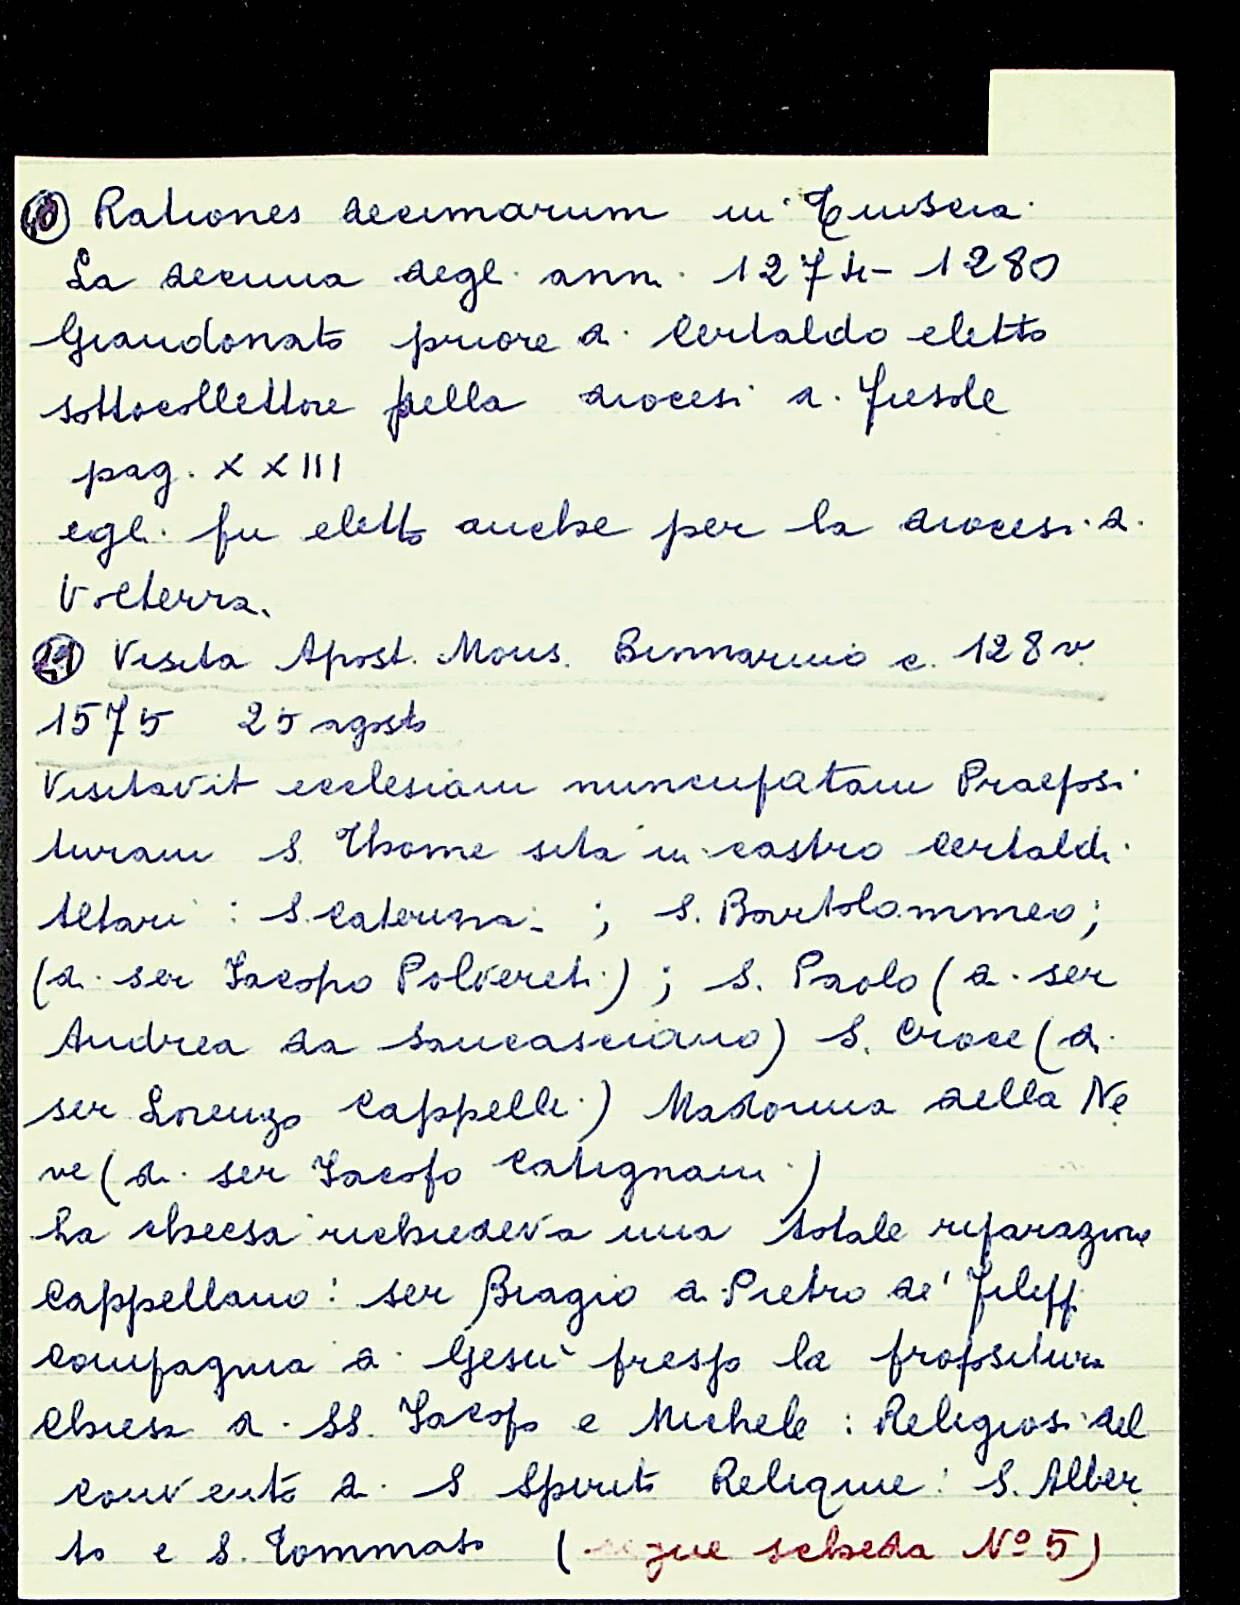 Rationes decimarum in Tuscia.
La decima degli anni 1274-1280
Giandonato priore di Certaldo eletto
sottocollettore della diocesi di Fiesole
pag. XXIII
egli fu eletto anche per la diocesi di
Volterra.
Visita Apost. Mons. Binnarino c. 128 v.
1575 25 agosto
Visitavit ecclesiam nuncupatam Praeposi
turam S. Thome sita in castro Certaldi
Altari : S. Caterina ; S. Bartolommeo ;
(di ser Jacopo Polvereti) ; S. Paolo (di ser
Andrea da Sancasciano) S. Croce (di
ser Lorenzo Cappelli) Madonna della Ne
ve (di ser Jacopo Catignani)
La chiesa richiedeva una totale riparazione
Cappellano : ser Biagio di Pietro de' Filippi
Compagnia di Gesù presso la propositura
Chiesa di SS. Jacopo e Michele : Religiosi del
convento di S Spirito Reliquie : S. Alber
to e S. Tommaso (segue scheda Nº 5)